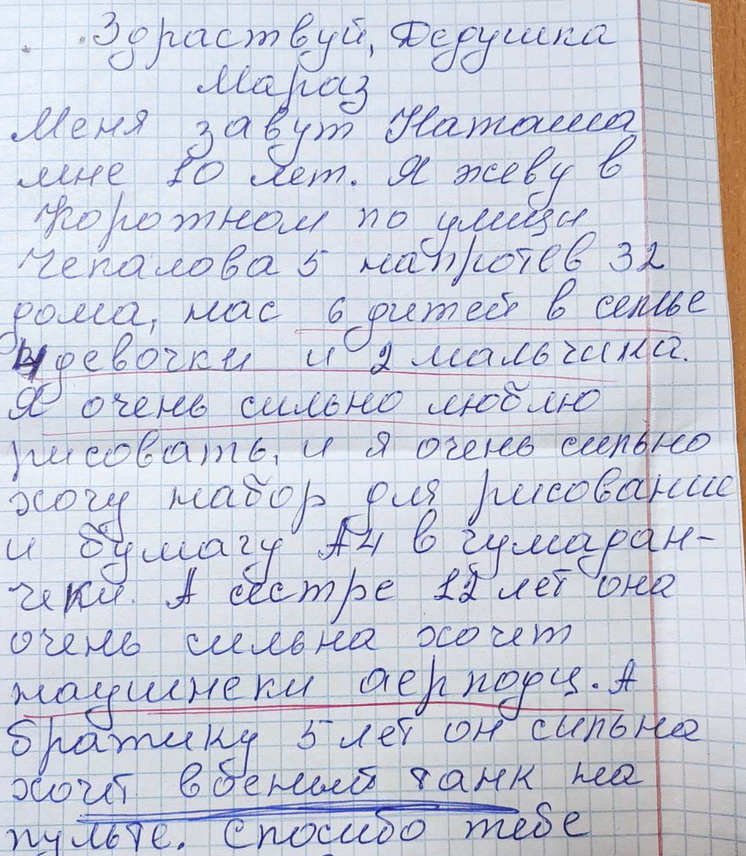 Здраствуй, Дедушка
Мараз
Меня завут Наташа
мне 10 лет. Я жеву в
Коротном по улици
Чепалова 5 напротев 32
дома, нас 6 дитей в семье
4 девочки и 2 мальчика.
Я очень сильно люблю
рисовать, и я очень сильно
хочу набор для рисование
и бумагу А4 в чумадан-
чеки. А сестре 12 лет она
очень сильна хочет
наушнеки аерподц. А
братику 5 лет он сильна
хочит вбеный танк на
пульте. Спосибо тебе